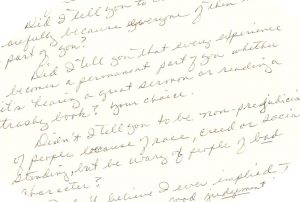 Did I tell you to
carefully because everyone of them
part of you?
Did I tell you that every experience
becomes a permanent part of you whether
it's hearing a great sermon or reading a
trashy book? Your choice.
Didn't I tell you to be non-prejudicial
of people because of race, creed or social
standing, but be wary of people of bad
character?
believe I ever implied
good judgement